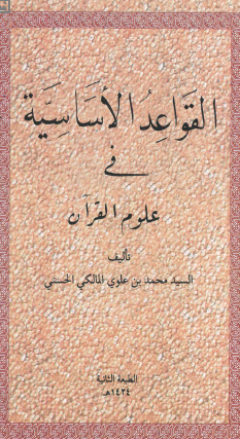 القَوَاعِدُ الأَسَاسِيَّة
فِي
علوم القرآن
تأليف
السيد محمد بن علوي المالكي الحسني
الطبعة الثانية
١٤٢٤هـ